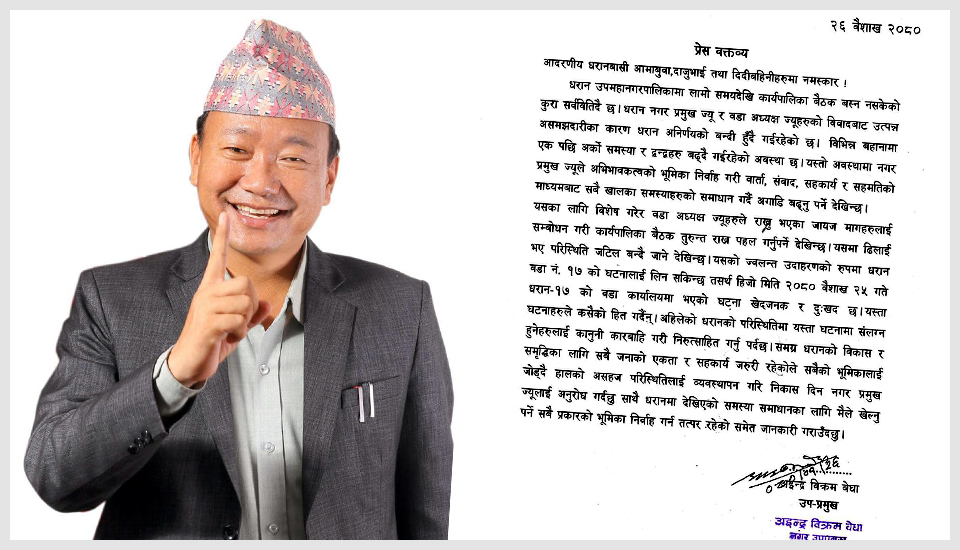 २६ वैशाख २०८०
प्रेस वक्तव्य
आदरणीय धरानबासी आमाबुवा,दाजुभाई तथा दिदीबहिनीहरुमा नमस्कार !
धरान उपमहानगरपालिकामा लामो समयदेखि कार्यपालिका बैठक बस्न नसकेको
कुरा सर्वविदितै छ। धरान नगर प्रमुख ज्यू र वडा अध्यक्ष ज्यूहरुको बिवादबाट उत्पन्न
असमझदारीका कारण धरान अनिर्णयको बन्दी हुँदै गईरहेको छ। विभिन्न बहानामा
एक पछि अर्को समस्या र द्वन्द्वहरु बढ्दै गईरहेको अवस्था छ। यस्तो अवस्थामा नगर
प्रमुख ज्यूले अभिभावकत्वको भूमिका निर्वाह गरी वार्ता, संवाद, सहकार्य र सहमतिको
माध्यमबाट सबै खालका समस्याहरुको समाधान गर्दै अगाडि बढ्नु पर्ने देखिन्छ।
यसका लागि बिशेष गरेर वडा अध्यक्ष ज्यूहरुले राख्नु भएका जायज मागहरुलाई
सम्बोधन गरी कार्यपालिका बैठक तुरुन्त राख्न पहल गर्नुपर्ने देखिन्छ। यसमा ढिलाई
भए परिस्थिति जटिल बन्दै जाने देखिन्छ। यसको ज्वलन्त उदाहरणको रुपमा धरान
वडा नं. १७ को घटनालाई लिन सकिन्छ तसर्थ हिजो मिति २०८० बैशाख २५ गते
धरान-१७ को वडा कार्यालयमा भएको घटना खेदजनक र दुःखद छ। यस्ता
घटनाहरुले कसैको हित गर्दैन्। अहिलेको धरानको परिस्थितिमा यस्ता घटनामा संलग्न
हुनेहरुलाई कानुनी कारबाहि गरी निरुत्साहित गर्नु पर्दछ। समग्र धरानको बिकास र
समृद्धिका लागि सबै जनाको एकता र सहकार्य जरुरी रहेकोले सबैको भूमिकालाई
जोड्दै हालको असहज परिस्थितिलाई व्यवस्थापन गरि निकास दिन नगर प्रमुख
ज्यूलाई अनुरोध गर्दछु साथै धरानमा देखिएको समस्या समाधानका लागि मैले खेल्नु
पर्ने सबै प्रकारको भूमिका निर्वाह गर्न तत्पर रहेको समेत जानकारी गराउँदछु।
अइन्द्र विक्रम बेघा
उप-प्रमुख
अइन्द्र विक्रम बेघा